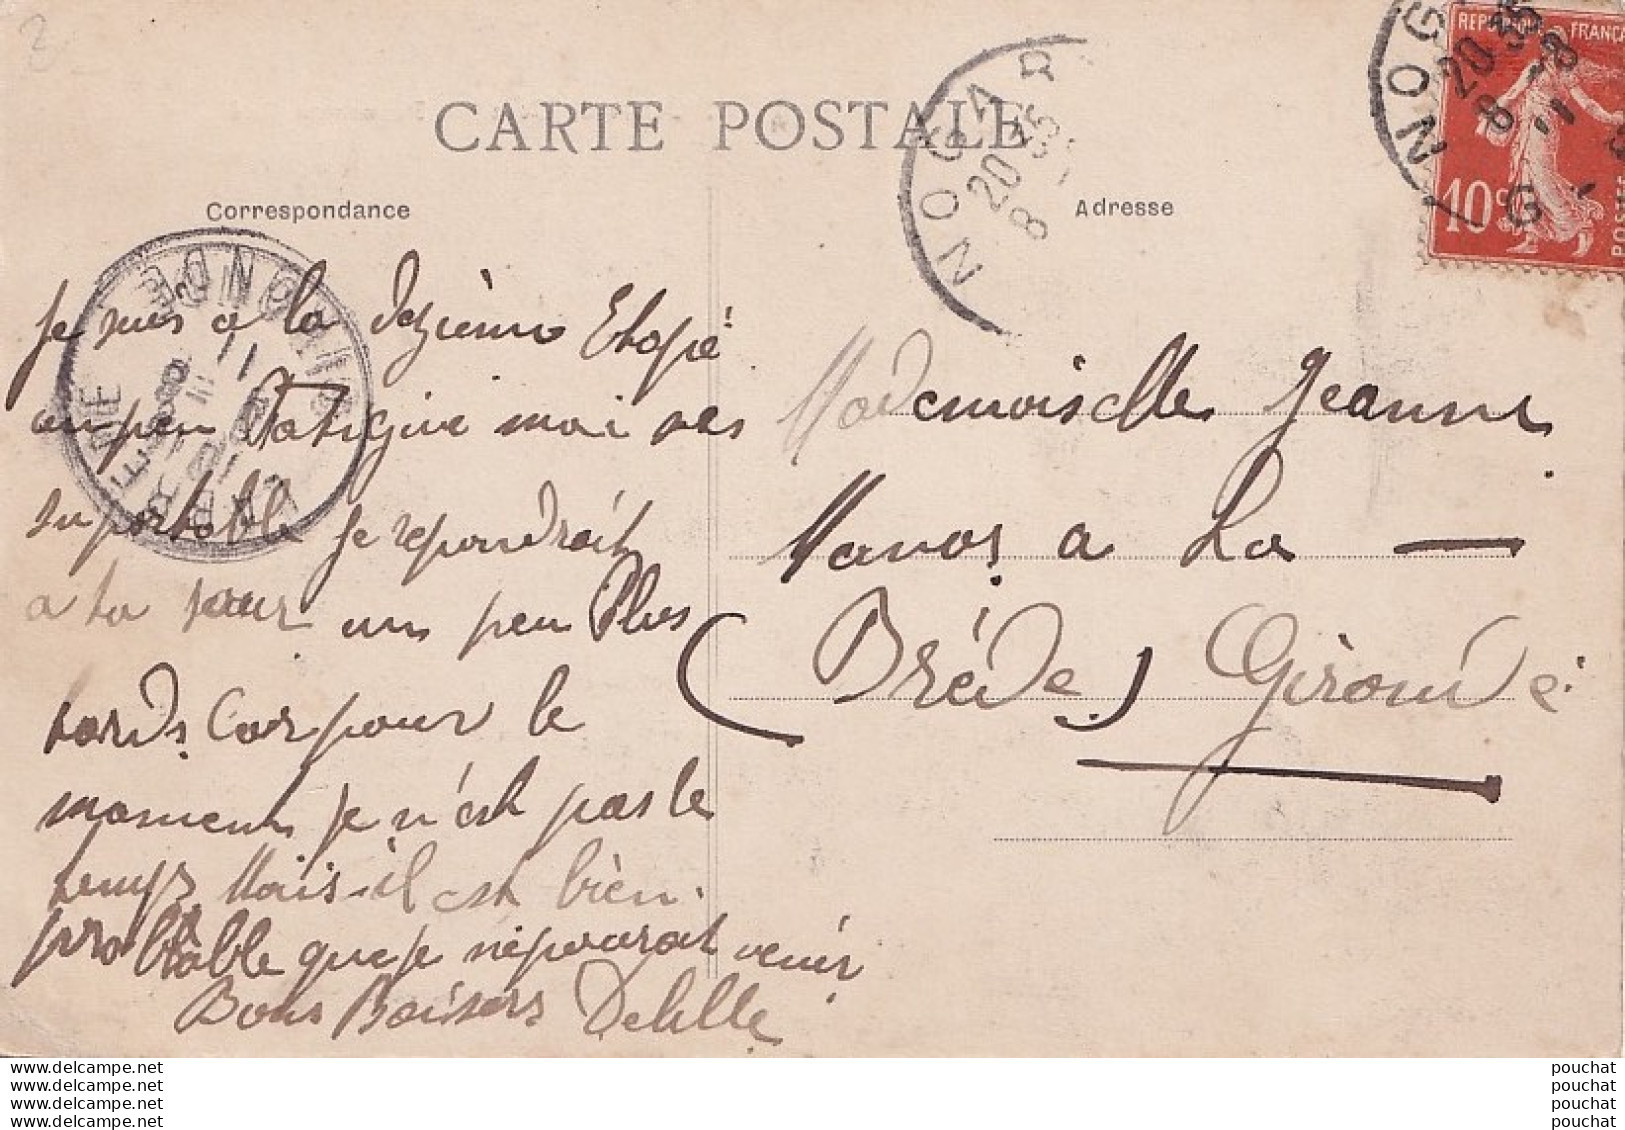 CARTE POSTALE
Correspondance
Adresse
RÉPUBLIQUE FRANÇA
10c
POSTES
NOGAR
20 35
8
NOG
20 35
8 - 8
11
G
LA BREDE
GIRONDE
11
je suis a la dezième Etapé
un peu fatigué mai
suportable je repondrait
a ta sœur un peu Plus
tards Car pour le
moment je n'est pas le
temps Mais il est bien
probtable que je venir
Bons Baisers Delille
Mademoiselle Jeanne
Manos a La —
(Bréde) Gironde
www.delcampe.net
www.delcampe.net
www.delcampe.net
www.delcampe.net
pouchat
pouchat
pouchat
pouchat